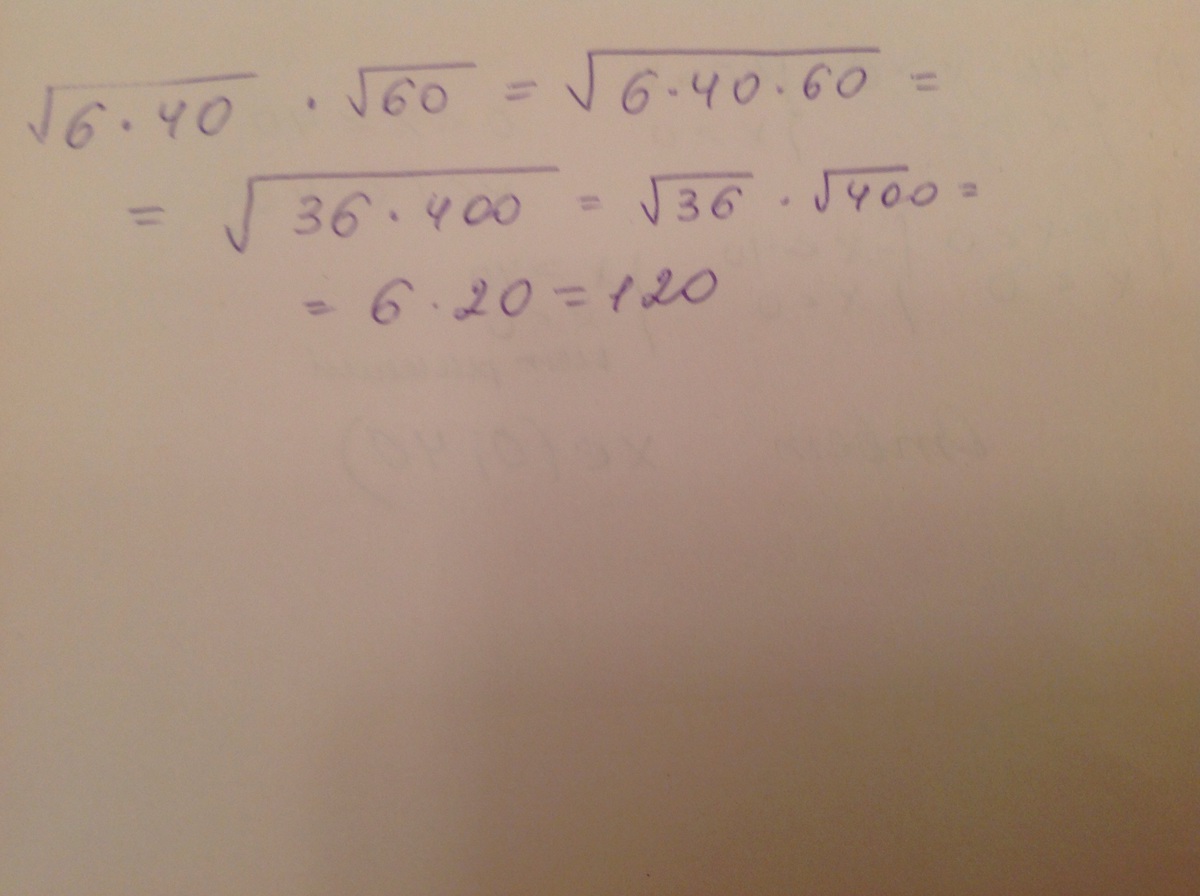 √6·40 · √60 = √6·40·60 =
= √36·400 = √36 · √400 =
= 6·20 = 120